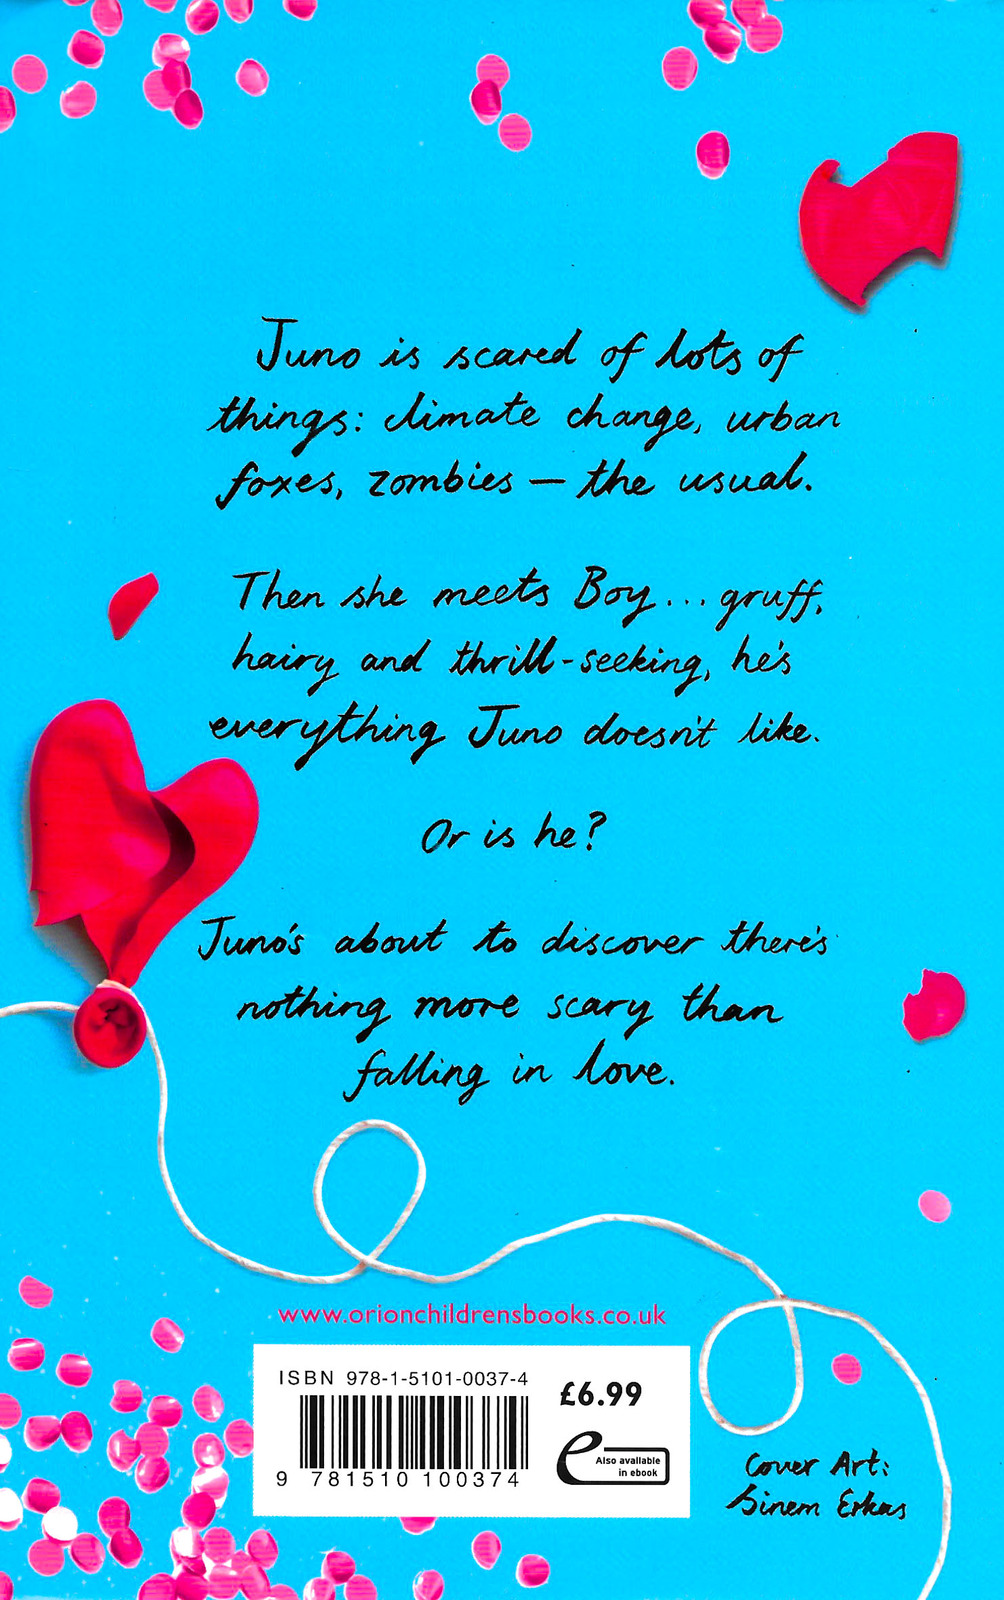 Juno is scared of lots of
things: climate change, urban
foxes, zombies – the usual.
Then she meets Boy... gruff,
hairy and thrill-seeking, he's
everything Juno doesn't like.
Or is he?
Juno's about to discover there's
nothing more scary than
falling in love.
www.orionchildrensbooks.co.uk
ISBN 978-1-5101-0037-4
£6.99
9 781510 100374
e
Also available
in ebook
Cover Art:
Sinem Erkas